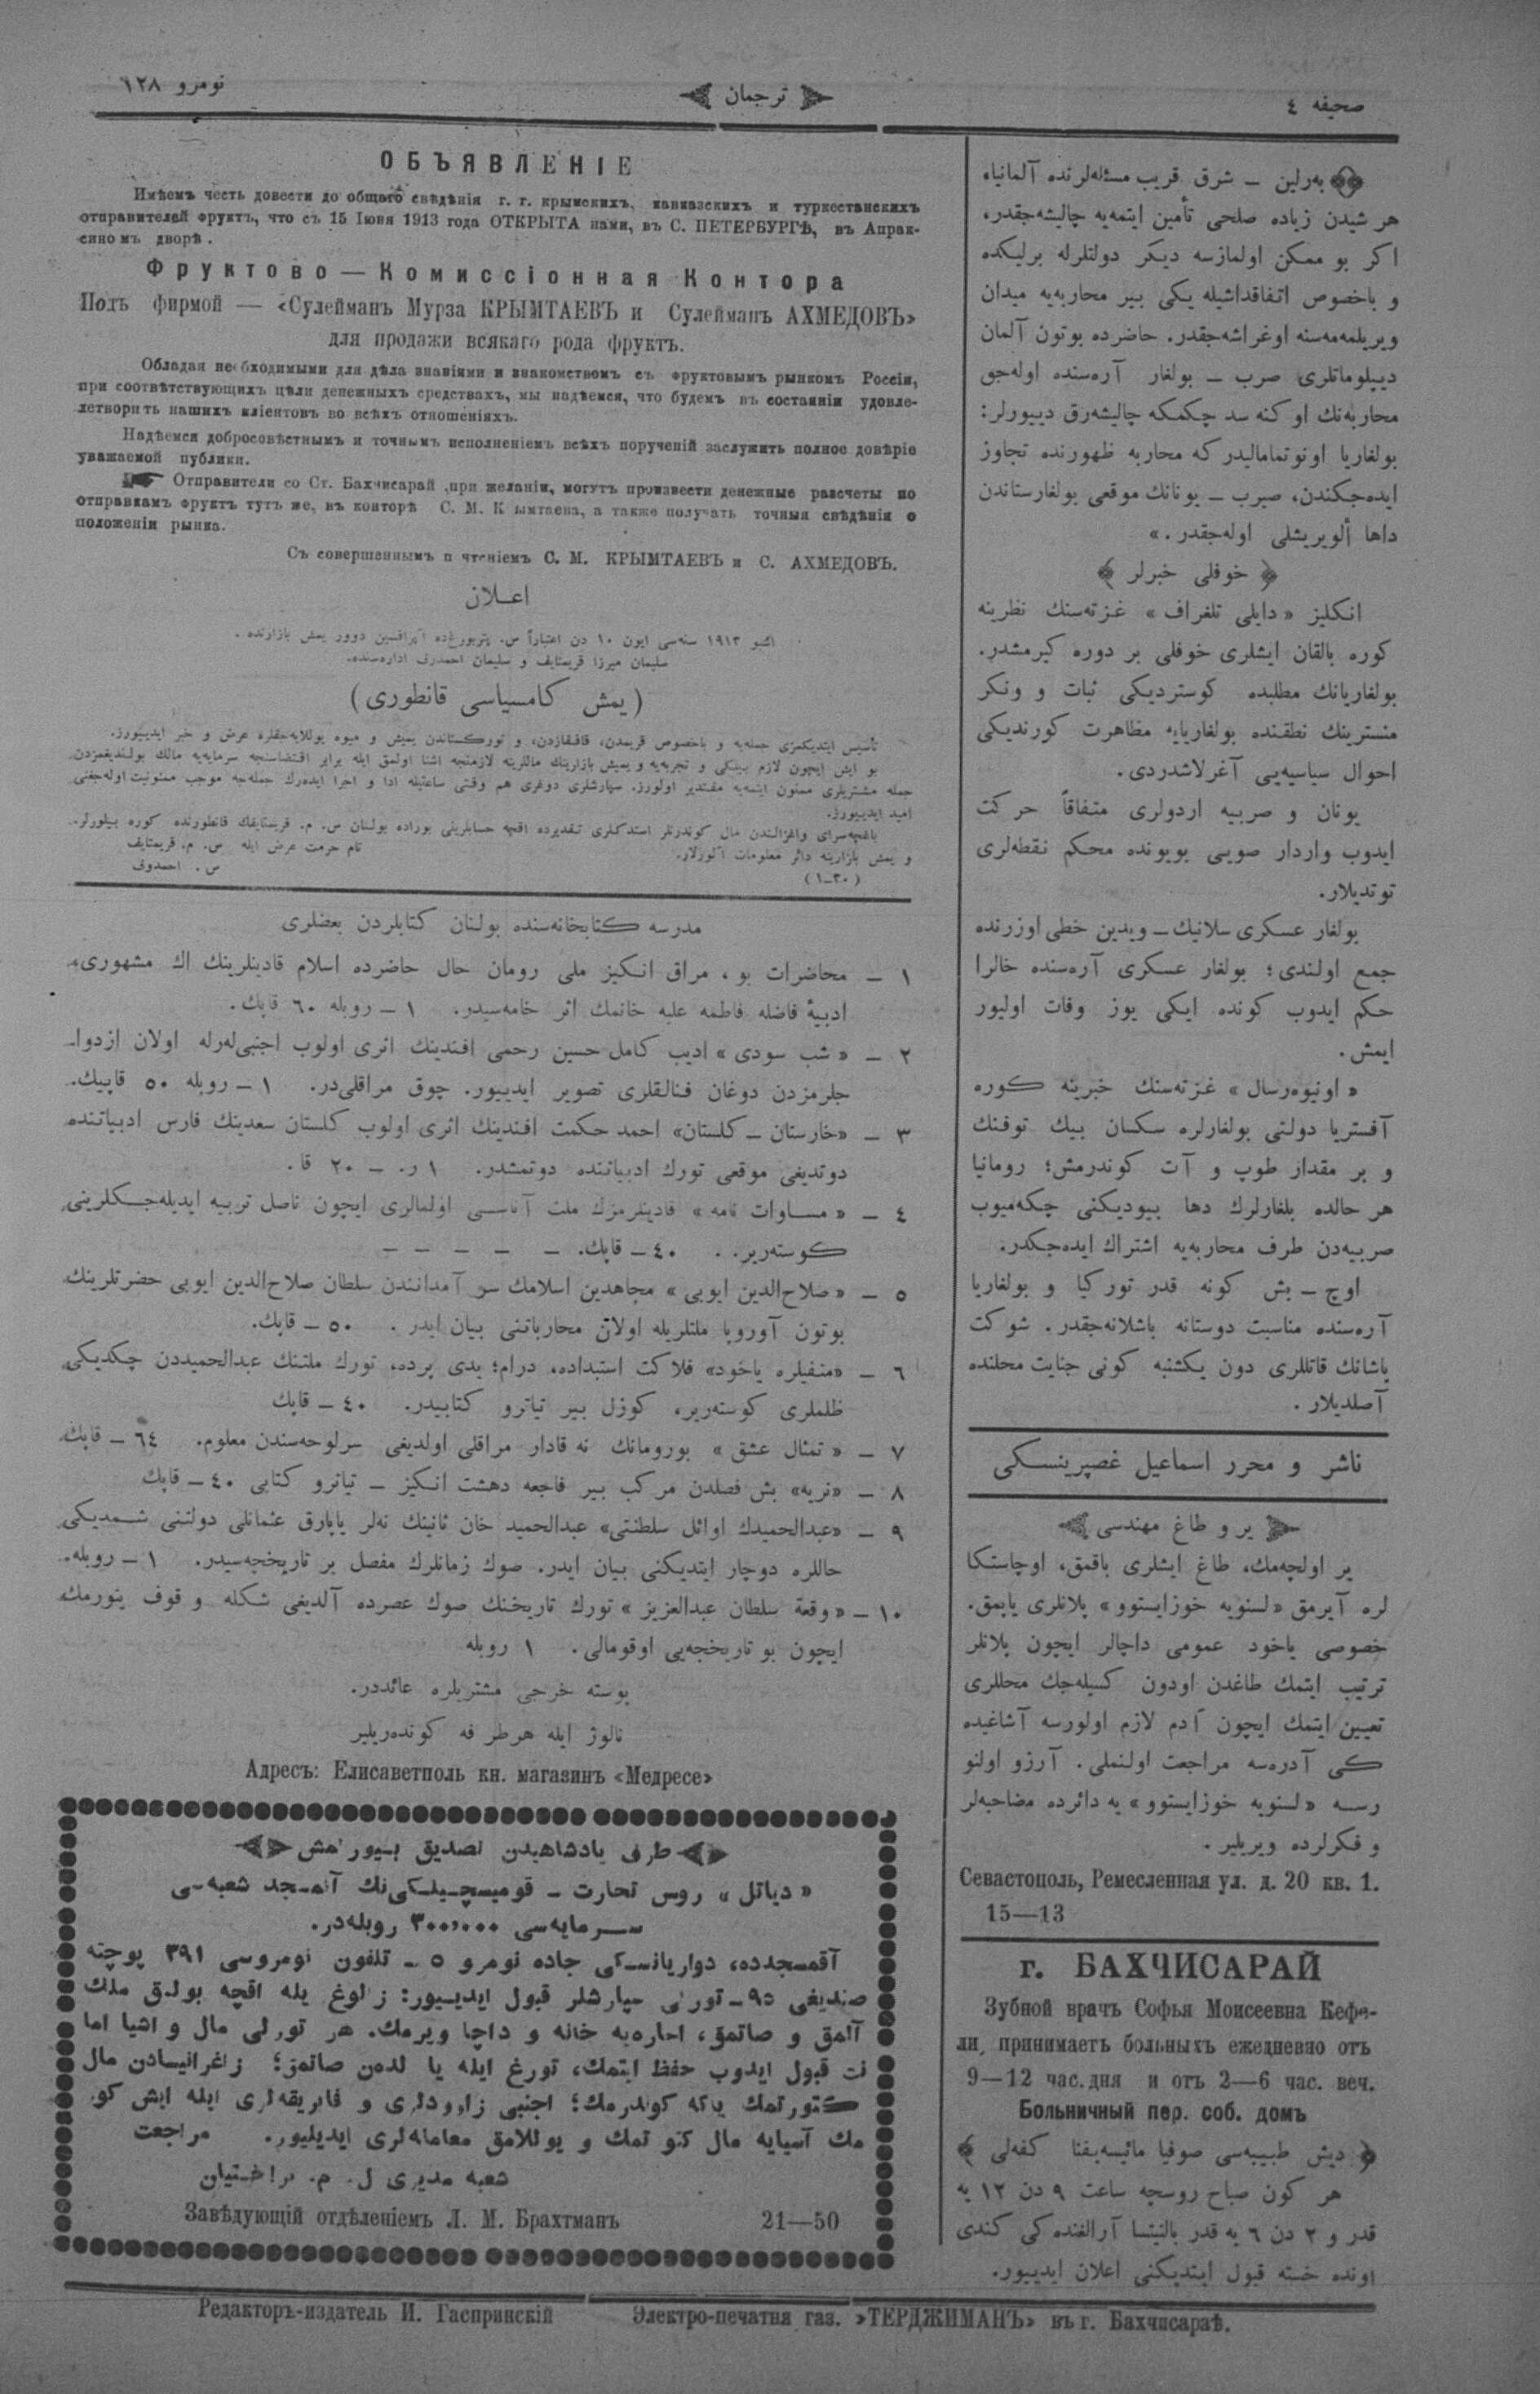 صحیفه ٤
ترجمان
نومرو ١٢٨
بەرلین ــ شرق قریب مسئله‌لرنده آلمانیا،
هر شیدن زیاده صلحی تأمین ایتمه‌یه چالیشه‌جقدر،
اکر بو ممکن اولمازسه دیکر دولتلرله برلیکده
و باخصوص اتفاقداشیله یکی بیر محاربه‌یه میدان
ویریلمه‌مه‌سنه اوغراشه‌جقدر. حاضرده بوتون آلمان
دیپلوماتلری صرب ــ بولغار آره‌سنده اوله‌جق
محاربه‌نك اوکنه سد چکمکه چالیشەرق دییورلر:
بولغاریا اونوتمامالیدر که محاربه ظهورنده تجاوز
ایده‌جکندن، صیرب ــ یونانك موقعی بولغارستاندن
داها ألویریشلی اوله‌جقدر.»
﴿ خوفلی خبرلر ﴾
انکلیز «دایلی تلغراف» غزته‌سنك نظرینه
کوره بالقان ایشلری خوفلی بر دوره کیرمشدر.
بولغاریانك مطلبده کوستردیکی ثبات و ونکر
منسترینك نطقنده بولغاریایه مظاهرت کورندیکی
احوال سیاسیه‌یی آغرلاشدردی.
یونان و صربیه اردولری متفاقاً حرکت
ایدوب واردار صویی بویونده محکم نقطه‌لری
توتدیلار.
بولغار عسکری سلانیك ــ ویدین خطی اوزرنده
جمع اولندی؛ بولغار عسکری آره‌سنده خالرا
حکم ایدوب کونده ایکی یوز وفات اولیور
ایمش.
«اونیوه‌رسال» غزته‌سنك خبرینه کوره
آفستریا دولتی بولغارلره سکسان بیك توفنك
و بر مقدار طوپ و آت کوندرمش؛ رومانیا
هر حالده بلغارلرك دها بیودیکنی چکه‌میوب
صربیه‌دن طرف محاربه‌یه اشتراك ایده‌جکدر.
اوچ ــ بش کونه قدر تورکیا و بولغاریا
آره‌سنده مناسبت دوستانه باشلانه‌جقدر. شوکت
پاشانك قاتللری دون یکشنبه کونی جنایت محلنده
آصلدیلار.
ناشر و محرر اسماعیل غصپرینسکی
یر و طاغ مهندسی
یر اولچه‌مك، طاغ ایشلری باقمق، اوچاستکا
لره آیرمق «لسنویه خوزایستوو» پلانلری یاپمق.
خصوصی یاخود عمومی داچالر ایچون پلانلر
ترتیب ایتمك طاغدن اودون کسیله‌جك محللری
تعیین ایتمك ایچون آدم لازم اولورسه آشاغیده
کی آدره‌سه مراجعت اولنملی. آرزو اولنو
رسه «لسنویه خوزایستوو» یه دائرده مصاحبه‌لر
و فکرلرده ویریلیر.
Севастополь, Ремесленная ул. д. 20 кв. 1.
15—13
г. БАХЧИСАРАЙ
Зубной врачъ Софья Моисеевна Кефе-
ли, принимаетъ больныхъ ежедневно отъ
9—12 час. дня и отъ 2—6 час. веч.
Больничный пер. соб. домъ
﴿ دیش طبیبه‌سی صوفیا مائیسه‌یفنا کفه‌لی ﴾
هر کون صباح روسچه ساعت ٩ دن ١٢ یه
قدر و ٢ دن ٦ یه قدر بالنیتسا آرالغنده‌کی کندی
اونده خسته قبول ایتدیکنی اعلان ایدییور.
ОБЪЯВЛЕНІЕ
Имѣемъ честь довести до общаго свѣдѣнія г. г. крымскихъ, кавказскихъ и туркестанскихъ
отправителей фруктъ, что съ 15 Іюня 1913 года ОТКРЫТА нами, въ С. ПЕТЕРБУРГѢ, въ Апрак-
синомъ дворѣ.
Фруктово — Комиссіонная Контора
Подъ фирмой — «Сулейманъ Мурза КРЫМТАЕВЪ и Сулейманъ АХМЕДОВЪ»
для продажи всякаго рода фруктъ.
Обладая необходимыми для дѣла знаніями и знакомствомъ съ фруктовымъ рынкомъ Россіи,
при соотвѣтствующихъ цѣли денежныхъ средствахъ, мы надѣемся, что будемъ въ состаяніи удовле-
летворить нашихъ кліентовъ во всѣхъ отношеніяхъ.
Надѣемся добросовѣстнымъ и точнымъ исполненіемъ всѣхъ порученій заслужить полное довѣріе
уважаемой публики.
Отправители со Ст. Бахчисарай ,при желаніи, могутъ произвести денежные разсчеты по
отправкамъ фруктъ тутъ же, въ конторѣ С. М. Крымтаева, а также получать точныя свѣдѣнія о
положеніи рынка.
Съ совершеннымъ п чтеніемъ С. М. КРЫМТАЕВЪ и С. АХМЕДОВЪ.
اعــلان
اشبو ١٩١٣ سنه‌سی ایون ١٠ دن اعتباراً س. پتربورغ‌ده آپراقسین دوور یمش بازارنده.
سلیمان میرزا قریمتایف و سلیمان احمدوف اداره‌سنده.
(یمش کامسیاسی قانطوری)
تأسیس ایتدیکمزی جمله‌یه و باخصوص قریمدن، قافقازدن، و تورکستاندن یمیش و میوه یوللایه‌جقلره عرض و خبر ایدییورز.
بو ایش ایچون لازم بیلکی و تجربه‌یه و یمیش بازارینك ماللرینه لازمنجه اشنا اولمق ایله برابر اقتضاسنجه سرمایه‌یه مالك بولندیغمزدن
جمله مشتریلری ممنون ایتمه‌یه مقتدیر اولورز. سپارشلری دوغری هم وقتی ساعتیله ادا و اجرا ایده‌رك جمله‌جه موجب ممنونیت اوله‌جغنی
امید ایدییورز.
باغچه‌سرای واغزالندن مال کوندرنلر استدکلری تقدیرده اقچه حسابلرینی بوراده بولنان س. م. قریمتایفك قانطورنده کوره بیلورلر.
و یمش بازارینه دائر معلومات آلورلار. تام حرمت عرض ایله س. م. قریمتایف
(٣٠ــ١) س. احمدوف
مدرسه کتابخانه‌سنده بولنان کتابلردن بعضلری
١ ــ محاضرات بو، مراق انکیز ملی رومان حال حاضرده اسلام قادینلرینك اك مشهوری،
ادبیهٔ فاضله فاطمه علیه خانمك اثر خامه‌سیدر. ١ ــ روبله ٦٠ قاپك.
٢ ــ «شب سودی» ادیب کامل حسین رحمی افندینك اثری اولوب اجنبی‌لەرله اولان ازدوا۔
جلرمزدن دوغان فنالقلری تصویر ایدییور. چوق مراقلی‌در. ١ ــ روبله ٥٠ قاپیك.
٣ ــ «خارستان ــ کلستان» احمد حکمت افندینك اثری اولوب کلستان سعدینك فارس ادبیاتنده
دوتدیغی موقعی تورك ادبیاتنده دوتمشدر. ١ ر. ــ ٢٠ قا.
٤ ــ «مساوات تامه» قادینلرمزك ملت آناسی اولمالری ایچون ناصل تربیه ایدیله‌جکلرینی
کوسته‌ریر. ٤٠ ــ قاپك. ــ ــ ــ ــ ــ
٥ ــ «صلاح‌الدین ایوبی» مجاهدین اسلامك سر آمدانندن سلطان صلاح‌الدین ایوبی حضرتلرینك
بوتون آوروپا ملتلریله اولان محارباتنی بیان ایدر. ٥٠ ــ قاپك.
٦ ــ «منفیلره یاخود» فلاکت استبداده، درام؛ یدی پرده، تورك ملتنك عبدالحمیددن چکدیکی
ظلملری کوسته‌ریر، کوزل بیر تیاترو کتابیدر. ٤٠ ــ قاپك
٧ ــ «تمثال عشق» بورومانك نه قادار مراقلی اولدیغی سرلوحه‌سندن معلوم. ٦٤ ــ قاپك
٨ ــ «نریه» بش فصلدن مرکب بیر فاجعه دهشت انکیز ــ تیاترو کتابی ٤٠ ــ قاپك
٩ ــ «عبدالحمیدك اوائل سلطنتی» عبدالحمید خان ثانینك نه‌لر یاپارق عثمانلی دولتنی شمدیکی
حاللره دوچار ایتدیکنی بیان ایدر. صوك زمانلرك مفصل بر تاریخچه‌سیدر. ١ ــ روبله.
١٠ ــ «وقعهٔ سلطان عبدالعزیز» تورك تاریخنك صوك عصرده آلدیغی شکله و قوف یتورمك
ایچون بو تاریخچه‌یی اوقومالی. ١ روبله
پوسته خرجی مشتریلره عائددر.
نالوژ ایله هرطرفه کونده‌ریلیر
Адресъ: Елисаветполь кн. магазинъ «Медресе»
طرف پادشاهیدن تصدیق بیورلمش
«دیاتل» روس تجارت ــ قومیسچیلکی‌نك آقمسجد شعبه‌سی
سرمایه‌سی ٣٠٠،٠٠٠ روبله‌در.
آقمسجدده، دواریانسکی جاده نومرو ٥ ــ تلفون نومروسی ٣٩١ پوچته
صندیغی ٩٥ ــ تورلی سپارشلر قبول ایدییور: زالوغ یله اقچه بولدق ملك
آلمق و صاتمق، اجاره‌یه خانه و داچا ویرمك. هر تورلی مال و اشیا اما
نت قبول ایدوب حفظ ایتمك، تورغ ایله یا لدەن صاتمق؛ زاغرانیسادن مال
کتورتمك یاکه کوندرمك؛ اجنبی زاوودلری و فابریقه‌لری ایله ایش کو
مك آسیایه مال کتورتمك و یوللامق معامله‌لری ایدیلیور. مراجعت
شعبه مدیری ل. م. براختمان
Завѣдующій отдѣленіемъ Л. М. Брахтманъ 21—50
Редакторъ-издатель И. Гаспринскій Электро-печатня газ. »ТЕРДЖИМАНЪ» въ г. Бахчисараѣ.